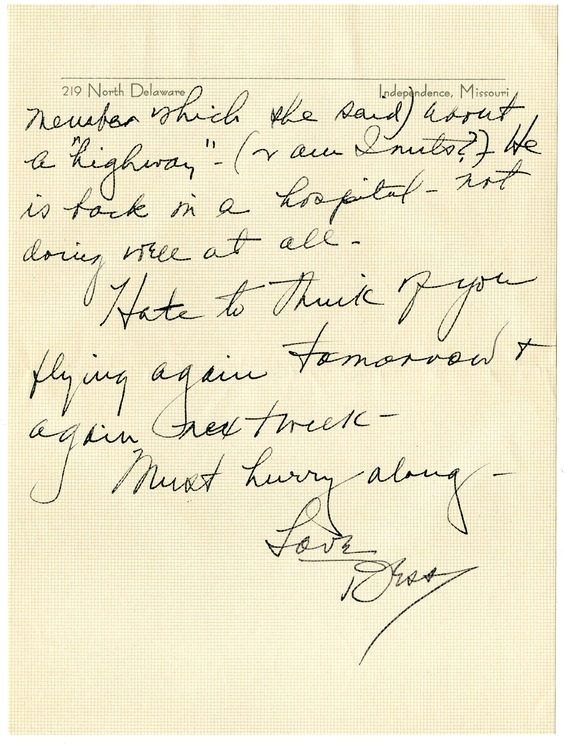 219 North Delaware Independence, Missouri
member which she said) about
a "highway" - (or am I nuts?) He
is back in a hospital - not
doing well at all -
Hate to think of you
flying again tomorrow +
again next week -
Must hurry along -
Love
Bess